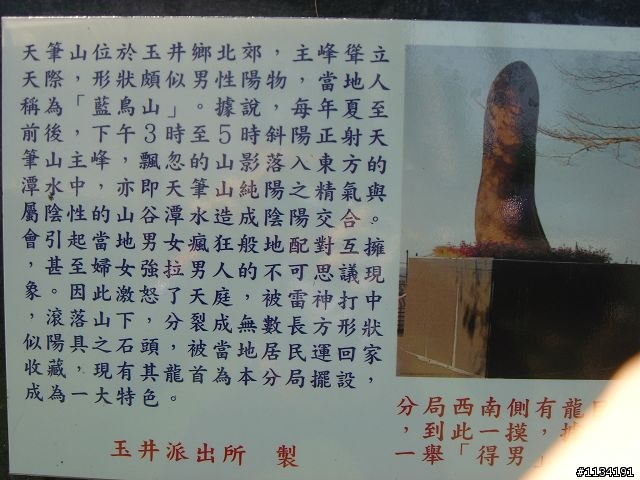 天筆山位於玉井鄉北郊，主峰聳立
天際，形狀頗似男性陽物，當地人
稱為「藍鳥山」。據說，每年夏至
前後，下午3時至5時斜陽正射天
筆山主峰，飄忽的山影落入東方的
潭水中，亦即天筆山純陽之精氣與
屬陰性的山谷潭水造成陰陽交合。
會引起當地男女瘋狂般地配對互擁
，甚至婦女強拉男人的不可思議現
象。因此激怒了天庭，被雷神打中
，滾落山下，分裂成無數長方形狀
似陽具之石頭，被當地居民運回家
收藏，現有其龍首為本分局擺設，
成為一大特色。
玉井派出所 製
分局西南側有龍
，到此一摸，
一舉「得男」
#1134191